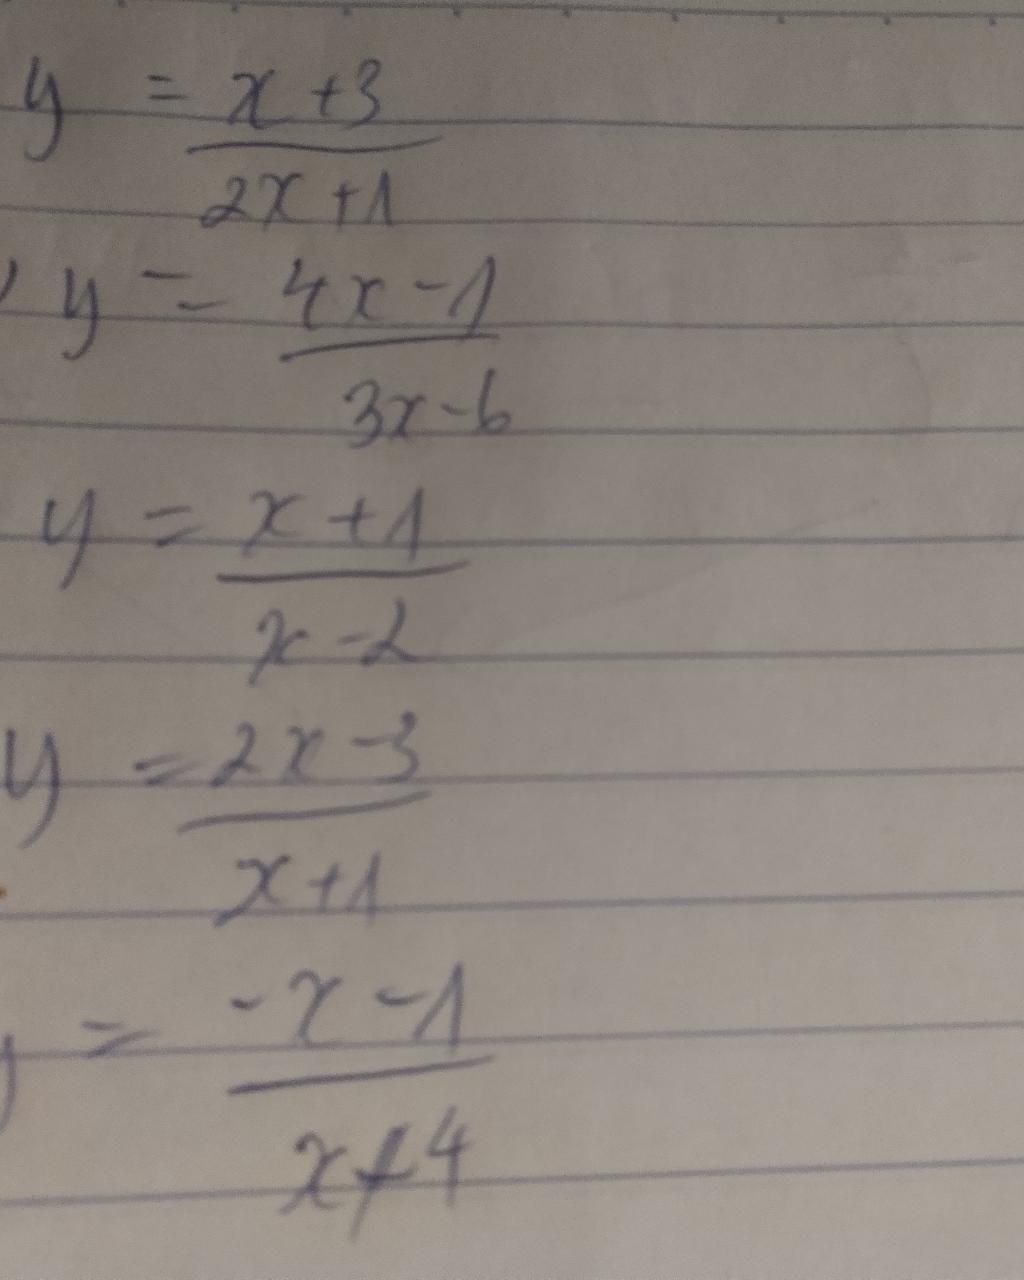 y = x+3
2x+1
) y = 4x-1
3x-6
y = x+1
x-2
y = 2x-3
x+1
y = -x-1
x+4